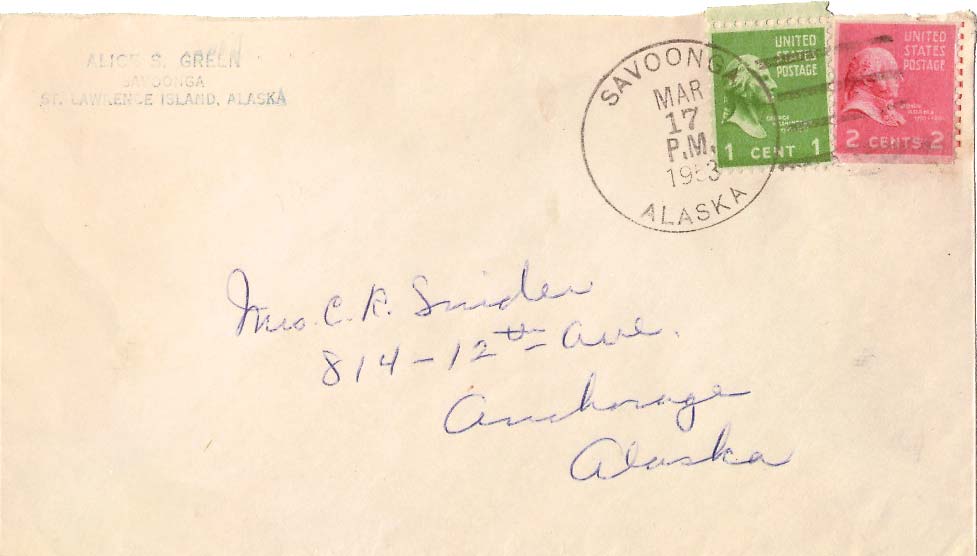 ALICE S. GREEN
SAVOONGA
ST. LAWRENCE ISLAND, ALASKA
SAVOONGA
MAR
17
P.M.
1953
ALASKA
UNITED
STATES
POSTAGE
GEORGE
WASHINGTON
1 CENT 1
UNITED
STATES
POSTAGE
JOHN
ADAMS
2 CENTS 2
Mrs. C. R. Snider
814-12th Ave.
Anchorage
Alaska